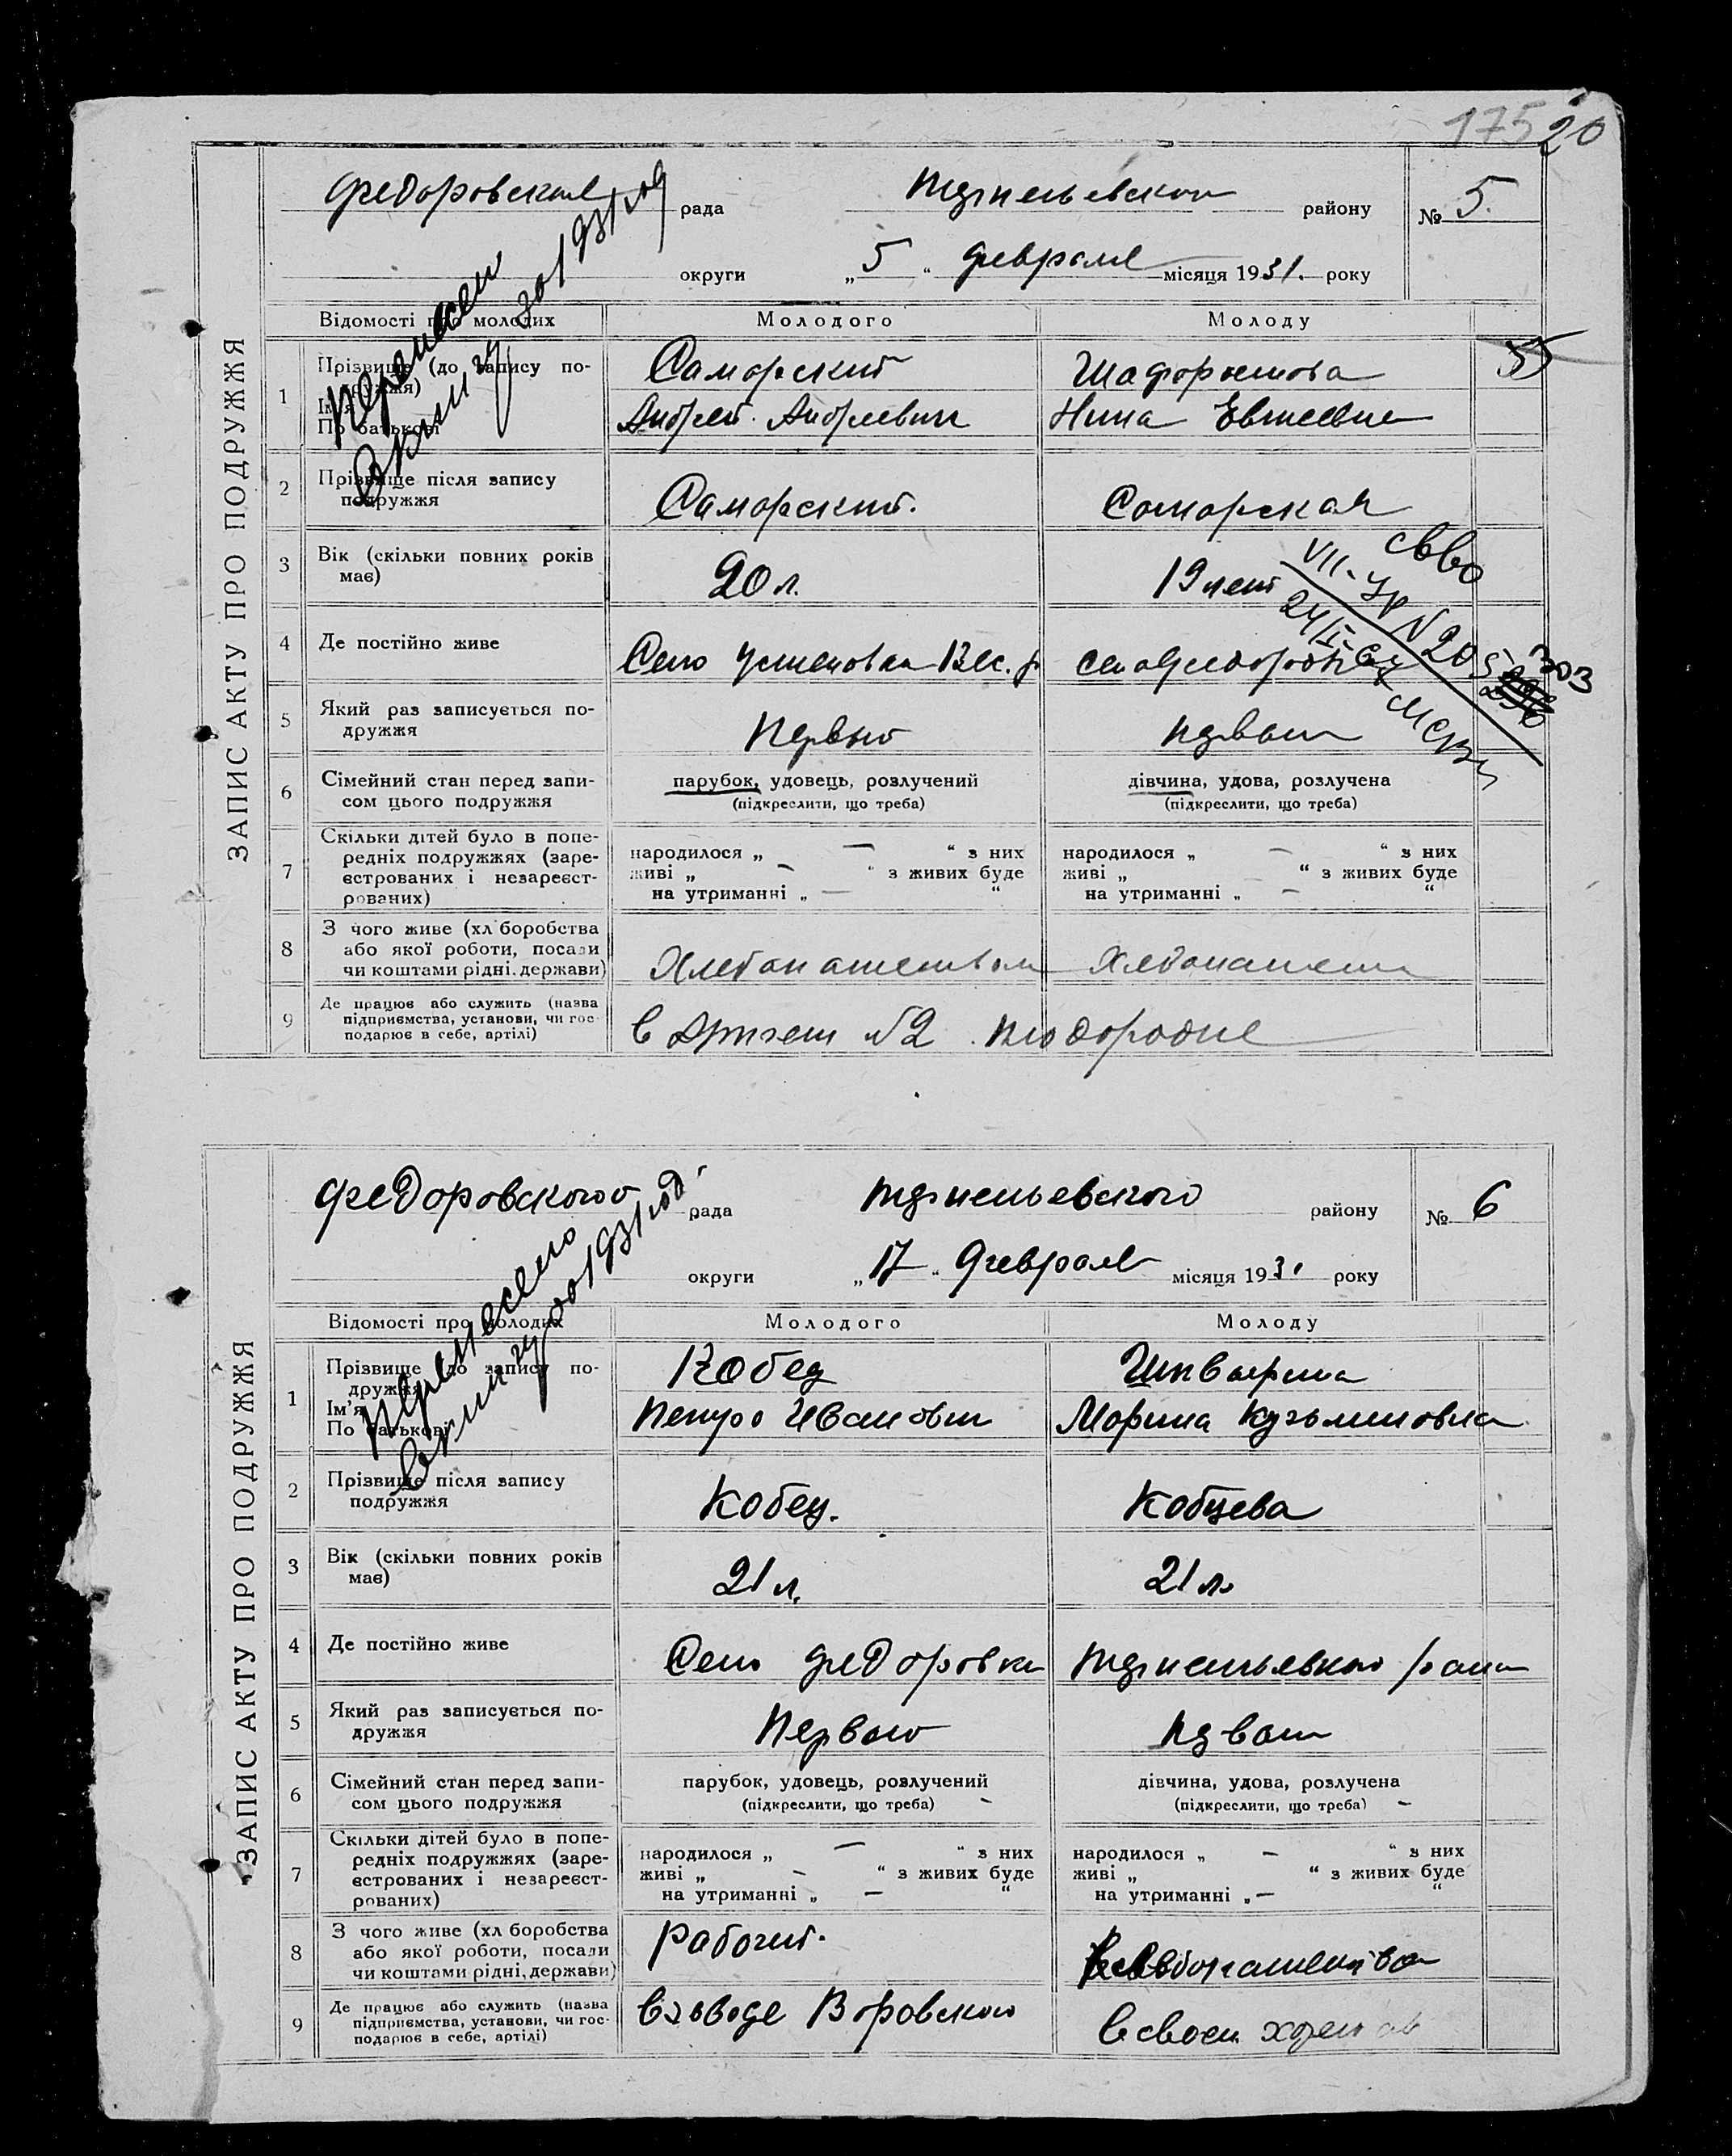 175 20
ЗАПИС АКТУ ПРО ПОДРУЖЖЯ
Федоровская рада района № 5.
округи „5“ февраля місяця 1931. року
за 1931 год
Відомості про молодих Молодого Молоду
1 Прізвище (до запису по-
дружжя)
Ім'я
По батькові
Саморский
Андрей Андреевич
Нина Евтеевна
55
2 Прізвище після запису
подружжя
Саморский. Саморская
3 Вік (скільки повних років
має)
20 л. 19 лет
4 Де постійно живе
Село Успеновка
5 Який раз записується по-
дружжя
Первый
6 Сімейний стан перед запи-
сом цього подружжя
парубок, удовець, розлучений
(підкреслити, що треба)
дівчина, удова, розлучена
(підкреслити, що треба)
7 Скільки дітей було в попе-
редніх подружжях (заре-
єстрованих і незареєст-
рованих)
народилося „ — “ з них
живі „ — “ з живих буде
на утриманні „ — “
народилося „ — “ з них
живі „ — “ з живих буде
на утриманні „ — “
8 З чого живе (хл боробства
або якої роботи, посади
чи коштами рідні. держави)
9 Де працює або служить (назва
підприємства, установи, чи гос-
подарює в себе, артілі)
в Артели №2 Плодородие
ЗАПИС АКТУ ПРО ПОДРУЖЖЯ
Федоровского рада района № 6
округи „17“ февраля місяця 1931 року
Перенесено
в книгу за 1931 год
Відомості про молодих Молодого Молоду
1 Прізвище до запису по-
дружжя
Ім'я
По батькові
Кобец
Петро Иванович
Шкварина
Марина Кузьминовна
2 Прізвище після запису
подружжя
Кобец. Кобцева
3 Вік (скільки повних років
має)
21 л. 21 л.
4 Де постійно живе
Село Федоровка
5 Який раз записується по-
дружжя
Первый
6 Сімейний стан перед запи-
сом цього подружжя
парубок, удовець, розлучений
(підкреслити, що треба) -
дівчина, удова, розлучена
(підкреслити, що треба) -
7 Скільки дітей було в попе-
редніх подружжях (заре-
єстрованих і незареєст-
рованих)
народилося „ — “ з них
живі „ — “ з живих буде
на утриманні „ — “
народилося „ — “ з них
живі „ “ з живих буде
на утриманні „ — “
8 З чого живе (хл боробства
або якої роботи, посади
чи коштами рідні, держави)
Рабочий.
9 Де працює або служить (назва
підприємства, установи, чи гос-
подарює в себе, артілі)
В заводе Воровского
в своем